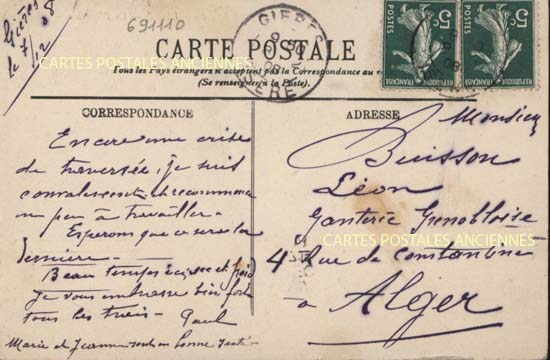 Gières
le 7/12 08
691110
GIERES
ISERE
5c
POSTES
REPUBLIQUE FRANÇAISE
5c
POSTES
REPUBLIQUE FRANÇAISE
CARTE POSTALE
CARTES POSTALES ANCIENNES
Tous les Pays étrangers n'acceptent pas la Correspondance au
(Se renseigner à la Poste).
CORRESPONDANCE
Encore une crise
de traversée; je suis
convalescent et recommence
un peu à travailler.
Esperons que ce sera la
dernière.
Beau temps sec et froid
je vous embrasse bien fort
tous les trois. Paul
Marie et Jeanne sont en bonne santé
ADRESSE
Monsieur
Buisson
Léon
Ganterie Grenobloise
CARTES POSTALES ANCIENNES
4 Rue de Constantine
à Alger